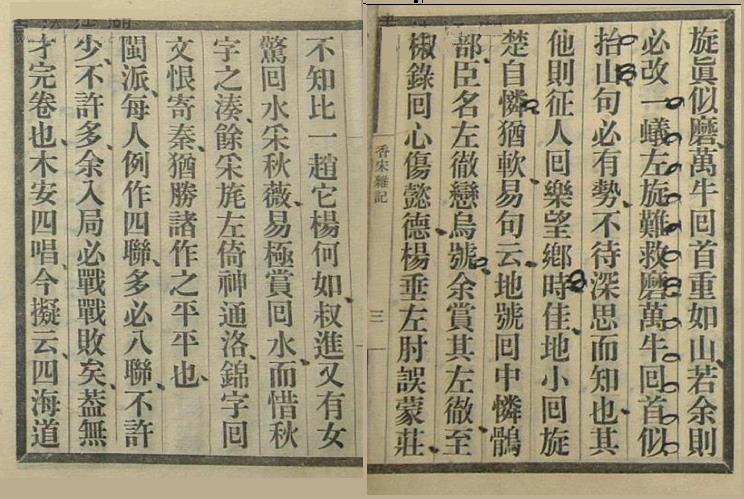 旋眞似磨萬牛回首重如山若余則
必改一蟻左旋難救磨萬牛回首似
抬山句必有勢不待深思而知也其
他則征人回樂望鄉時佳地小回旋
楚自憐猶軟易句云地號回中憐鶻
部臣名左徹戀烏號余賞其左徹至
椒錄回心傷懿德楊垂左肘誤蒙莊
香宋雜記
三
不知比一趙它楊何如叔進又有女
驚回水采秋薇易極賞回水而惜秋
字之湊餘采旄左倚神通洛錦字回
文恨寄秦猶勝諸作之平平也
閩派每人例作四聯多必八聯不許
少不許多余入局必戰戰敗矣葢無
才完卷也木安四唱今擬云四海道